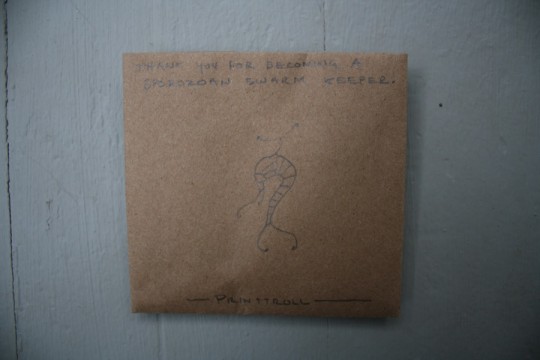 THANK YOU FOR BECOMING A
SPOROZOAN SWARM KEEPER.
PRINTTROLL